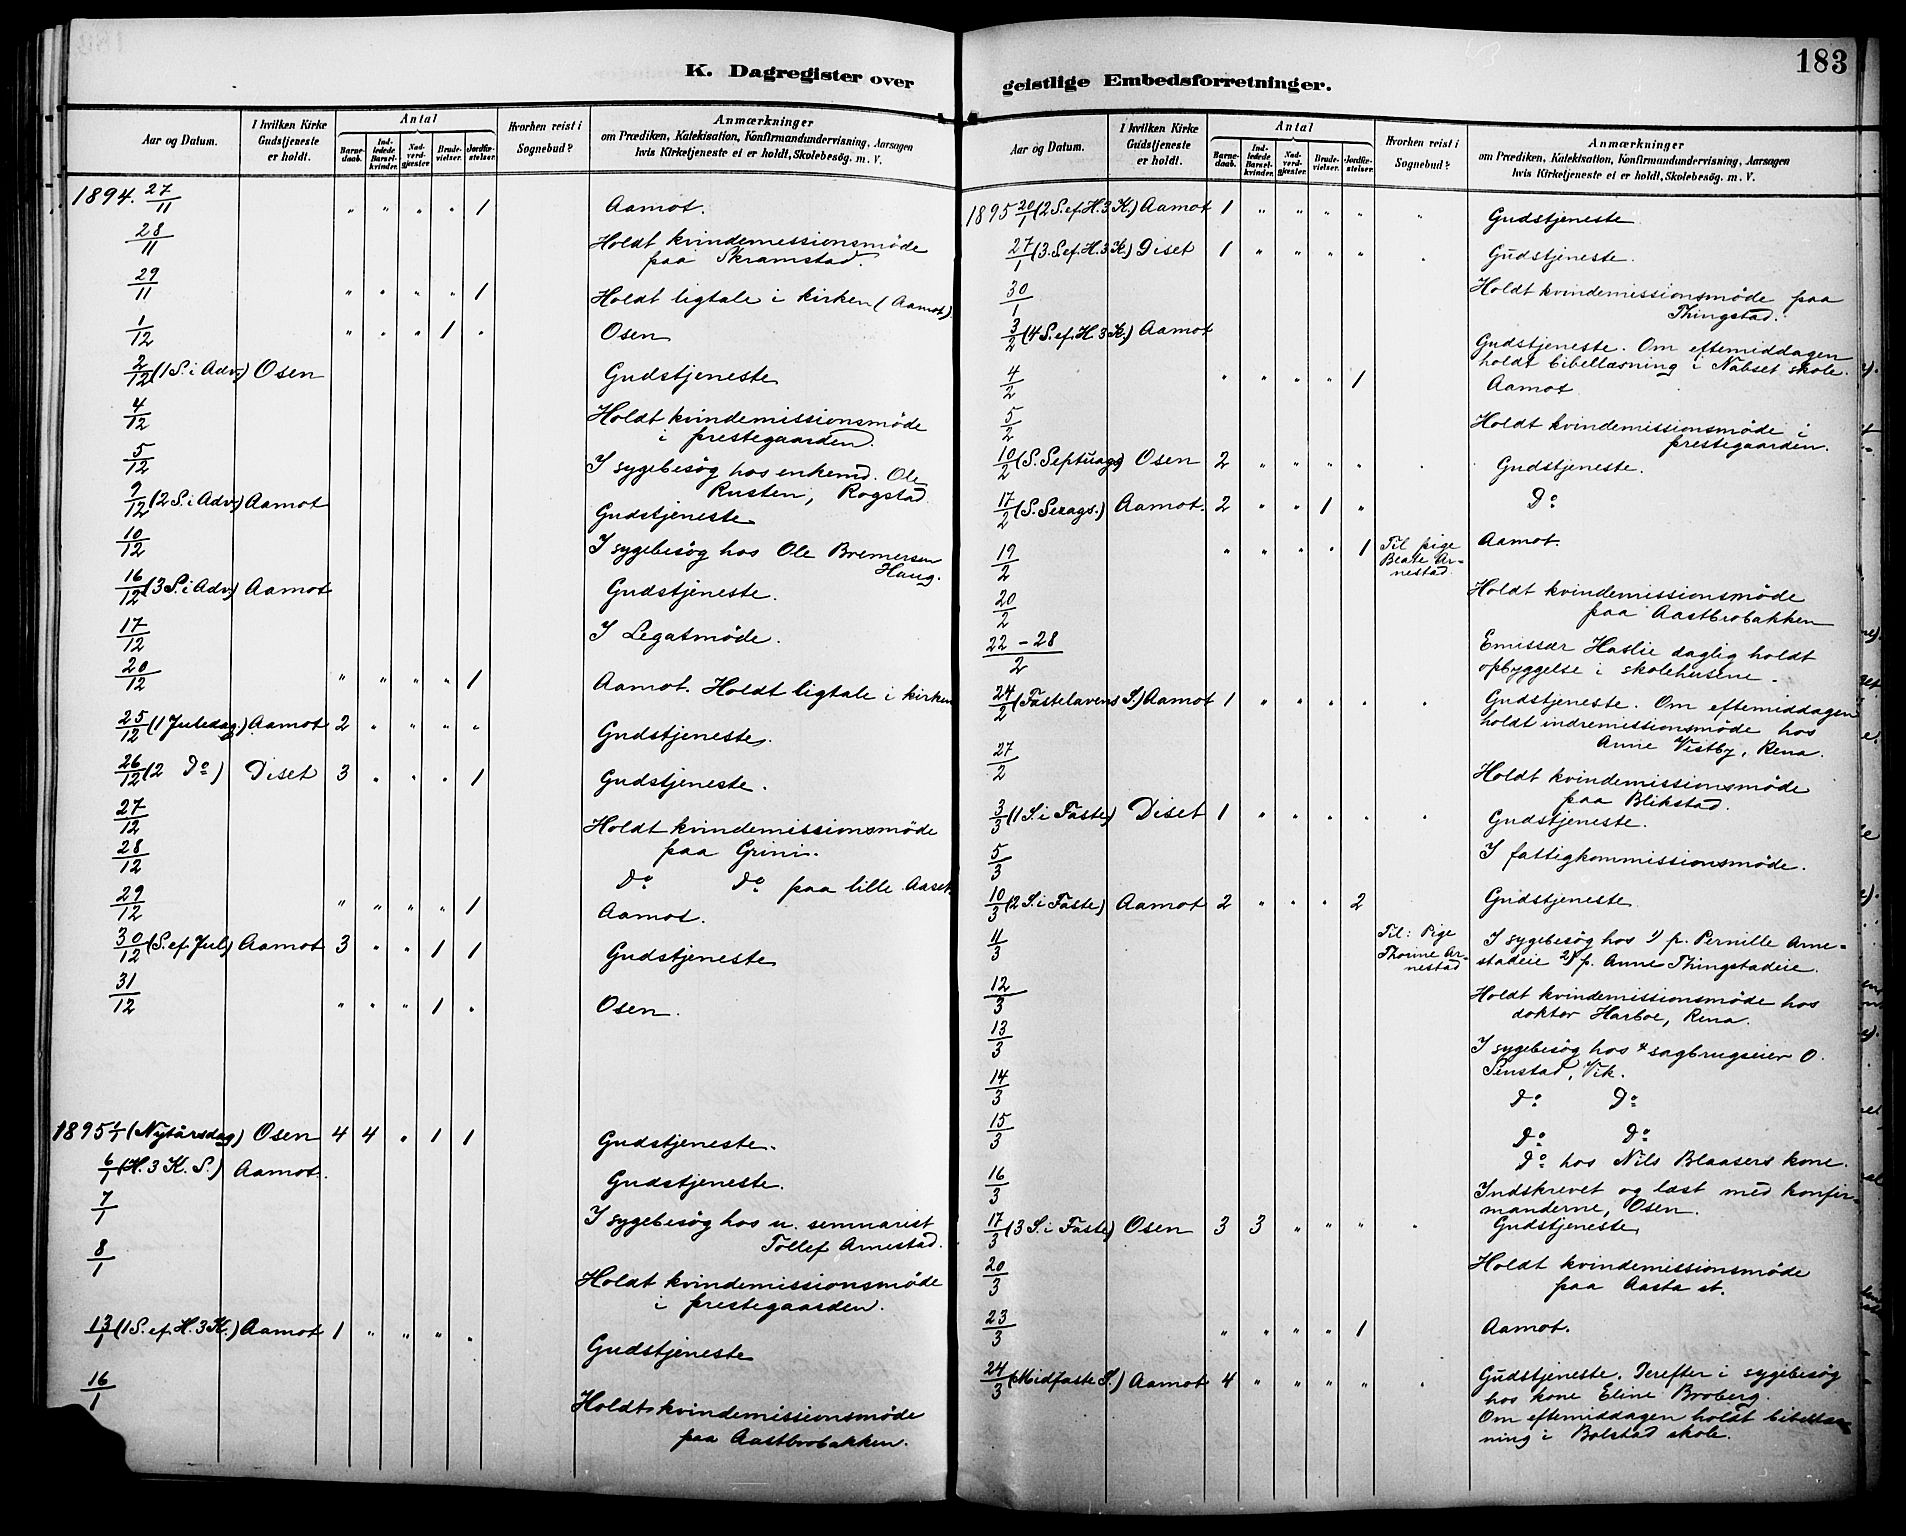 K. Dagregister over
Aar og Datum.
I hvilken Kirke Gudstjeneste er holdt.
Antal
Barnedaab.
Indledede Barselkvinder.
Nadverdgjester.
Brudevielser.
Jordfæstelser.
Hvorhen reist i Sognebud?
Anmærkninger
om Prædiken, Katekisation, Konfirmandundervisning, Aarsagen
hvis Kirketjeneste ei er holdt, Skolebesøg. m. V.
1894. 27/11 " " " " 1 Aamot.
28/11 Holdt kvindemissionsmøde
paa Skramstad.
29/11 " " " " 1 Holdt ligtale i kirken (Aamot)
1/12 " " " 1 " Osen
2/12 (1 S. i Adv.) Osen Gudstjeneste
4/12 Holdt kvindemissionsmøde
i prestegaarden.
5/12 I sygebesøg hos enkemd. Ole
Rusten, Rogstad.
9/12 (2 S. i Adv.) Aamot Gudstjeneste
10/12 I sygebesøg hos Ole Bremersen
Haug.
16/12 (3 S. i Adv.) Aamot Gudstjeneste.
17/12 I Legatmøde.
20/12 " " " " 1 Aamot. Holdt ligtale i kirken
25/12 (1 Juledag.) Aamot 2 " " " " Gudstjeneste.
26/12 (2 Do) Diset 3 " " " 1 Gudstjeneste.
27/12 Holdt kvindemissionsmøde
paa Grini.
28/12 Do Do paa lille Aaset.
29/12 " " " " 1 Aamot.
30/12 (S. ef. Jul) Aamot 3 " " 1 1 Gudstjeneste
31/12 " " " 1 " Osen.
1895 1/1 (Nytårsdag) Osen 4 4 " 1 1 Gudstjeneste.
6/1 (H. 3 K. S.) Aamot. Gudstjeneste.
7/1 I sygebesøg hos u. semnarist
Tollef Arnestad.
8/1 Holdt kvindemissionsmøde
i prestegaarden.
13/1 (1 S. ef. H. 3 K.) Aamot 1 " " " " Gudstjeneste
16/1 Holdt kvindemissionsmøde
paa Aastbrobakken.
geistlige Embedsforretninger.
183
Aar og Datum.
I hvilken Kirke Gudstjeneste er holdt.
Antal
Barnedaab.
Indledede Barselkvinder.
Nadverdgjester.
Brudevielser.
Jordfæstelser.
Hvorhen reist i Sognebud?
Anmærkninger
om Prædiken, Katekisation, Konfirmandundervisning, Aarsagen
hvis Kirketjeneste ei er holdt, Skolebesøg. m. V.
1895 20/1 (2 S. ef. H. 3 K.) Aamot 1 " " " " " Gudstjeneste
27/1 (3. S. ef. H. 3 K) Diset 1 " " " " " Gudstjeneste.
30/1 Holdt kvindemissionsmøde paa
Thingstad.
3/2 (4 S. ef. H. 3 K.) Aamot Gudstjeneste. Om eftemiddagen
holdt bibellæsning i Nabset skole.
4/2 " " " " 1 Aamot
5/2 Holdt kvindemissionsmøde i
prestegaarden.
10/2 (S. Septuags) Osen 2 " " " " " Gudstjeneste.
17/2 (S. Sexags.) Aamot. 2 " " 1 " Do
19/2 " " " " 1 Til pige Beate Arnestad. Aamot.
20/2 Holdt kvindemissionsmøde
paa Aastbrobakken
22-28/2 Emissær Haslie daglig holdt
opbyggelse i skolehusene.
24/2 (Fastelavens S.) Aamot 1 " " " " " Gudstjeneste. Om eftemiddagen
holdt indremissionsmøde hos
Anne Vistby, Rena.
27/2 Holdt kvindemissionsmøde
paa Blikstad.
3/3 (1 S. i Faste) Diset 1 " " " " " Gudstjeneste.
5/3 I fattigkommissionsmøde.
10/3 (2 S. i Faste) Aamot 2 " " " 2 Gudstjeneste
11/3 Til: Pige Thorine Arnestad I sygebesøg hos 1) p. Pernille Arne-
stadeie 2) p. Anne Thingstadeie.
12/3 Holdt kvindemissionsmøde hos
doktor Harboe, Rena.
13/3 I sygebesøg hos sagbrugseier O.
Senstad, Vik.
14/3 Do Do
15/3 Do Do
Do hos Nils Blaasers kone.
16/3 Indskrevet og læst med konfir-
manderne, Osen.
17/3 (3 S. i Faste) Osen 3 3 " " " " Gudstjeneste
20/3 Holdt kvindemissionsmøde
paa Aasta st.
23/3 " " " " 1 Aamot.
24/3 (Midfaste S.) Aamot 4 " " " " " Gudstjeneste. Derefter i sygebesøg
hos kone Eline Broberg.
Om eftemiddagen holdt bibellæs-
ning i Bolstad skole.